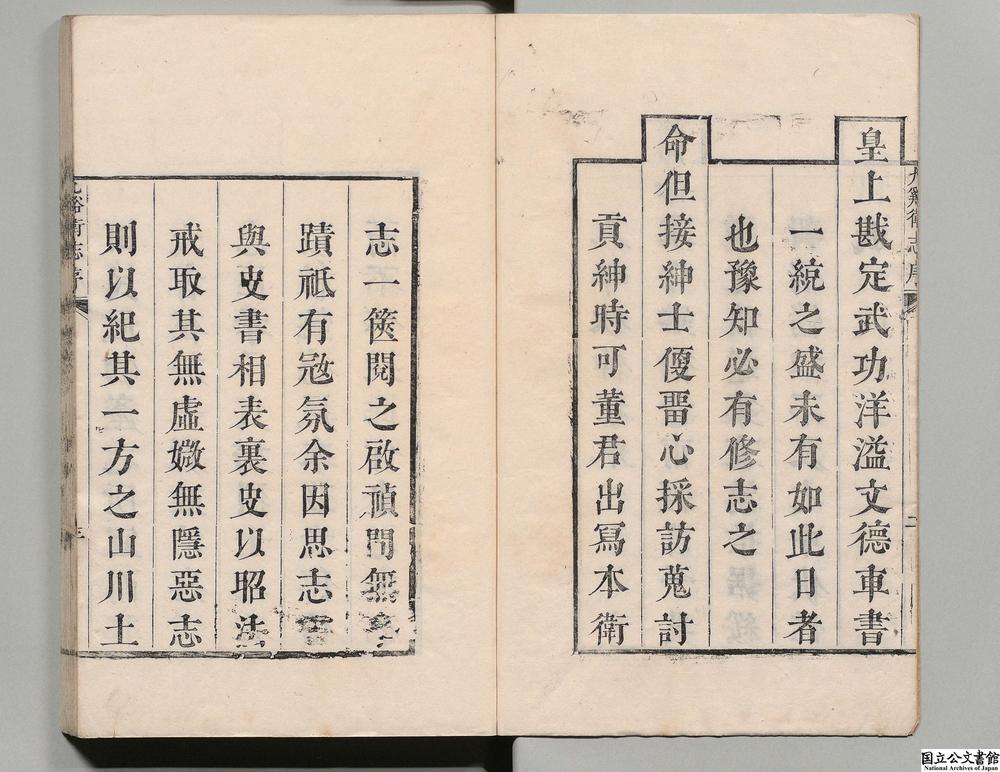 九谿衛志序
二
皇上戡定武功洋溢文德車書
一統之盛未有如此日者
也豫知必有修志之
命但接紳士便畱心採訪蒐討
貢紳時可董君出寫本衛
志一篋閱之啟禎間無
蹟祗有冦氛余因思志
與史書相表裏史以昭法
戒取其無虛媺無隱惡志
則以紀其一方之山川土
谿衛志序
三
国立公文書館
National Archives of Japan